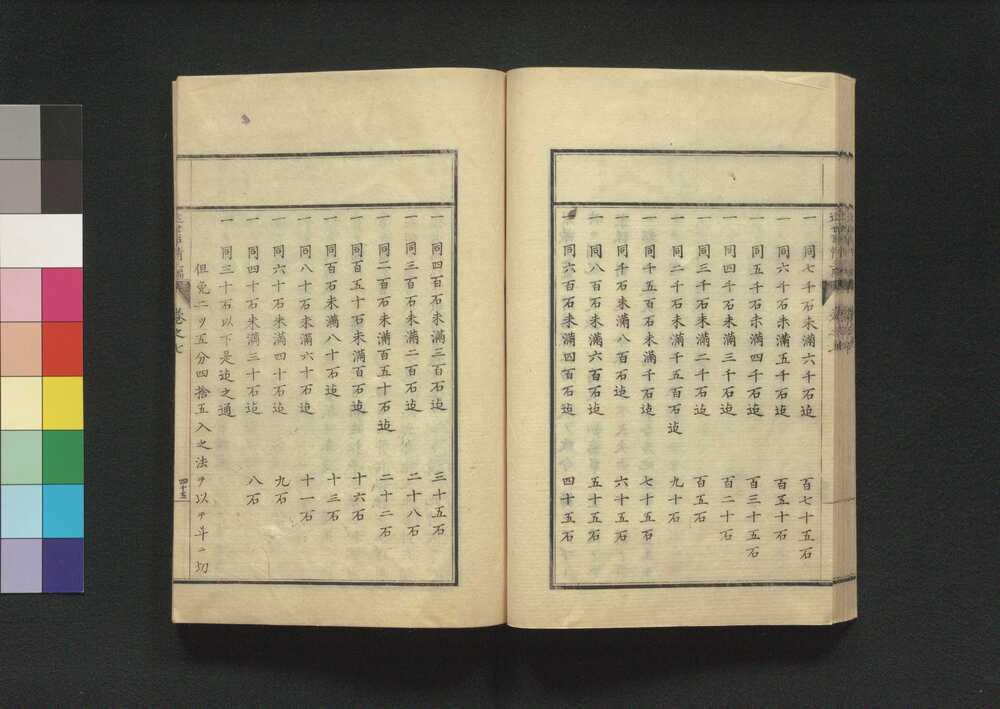 一 同七千石未滿六千石迠 百七十五石
一 同六千石未滿五千石迠 百五十石
一 同五千石未滿四千石迠 百三十五石
一 同四千石未滿三千石迠 百二十石
一 同三千石未滿二千石迠 百五石
一 同二千石未滿千五百石迠 九十石
一 同千五百石未滿千石迠 七十五石
一 同千石未滿八百石迠 六十五石
一 同八百石未滿六百石迠 五十五石
一 同六百石未滿四百石迠 四十五石
一 同四百石未滿三百石迠 三十五石
一 同三百石未滿二百石迠 二十八石
一 同二百石未滿百五十石迠 二十二石
一 同百五十石未滿百石迠 十六石
一 同百石未滿八十石迠 十三石
一 同八十石未滿六十石迠 十一石
一 同六十石未滿四十石迠 九石
一 同四十石未滿三十石迠 八石
一 同三十石以下是迠之通
但免二ヲ五分四捨五入之法ヲ以テ斗ニ切
卷之七
四十五